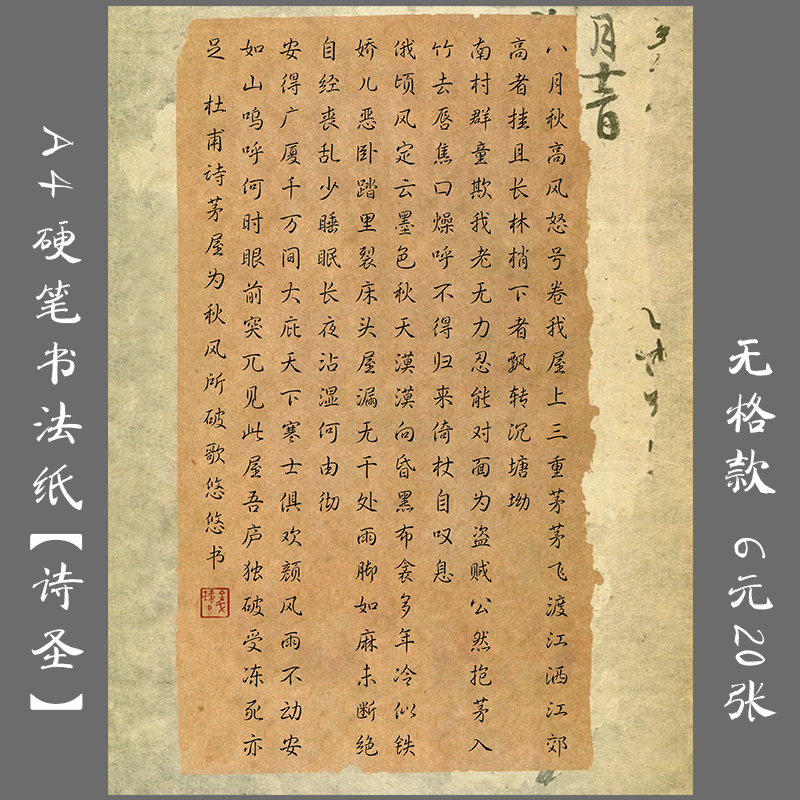 A4硬笔书法纸【诗圣】
无格款 6元20张
八月秋高风怒号卷我屋上三重茅茅飞渡江洒江郊
高者挂且长林梢下者飘转沉塘坳
南村群童欺我老无力忍能对面为盗贼公然抱茅入
竹去唇焦口燥呼不得归来倚杖自叹息
俄顷风定云墨色秋天漠漠向昏黑布衾多年冷似铁
娇儿恶卧踏里裂床头屋漏无干处雨脚如麻未断绝
自经丧乱少睡眠长夜沾湿何由彻
安得广厦千万间大庇天下寒士俱欢颜风雨不动安
如山呜呼何时眼前突兀见此屋吾庐独破受冻死亦
足 杜甫诗茅屋为秋风所破歌悠悠书